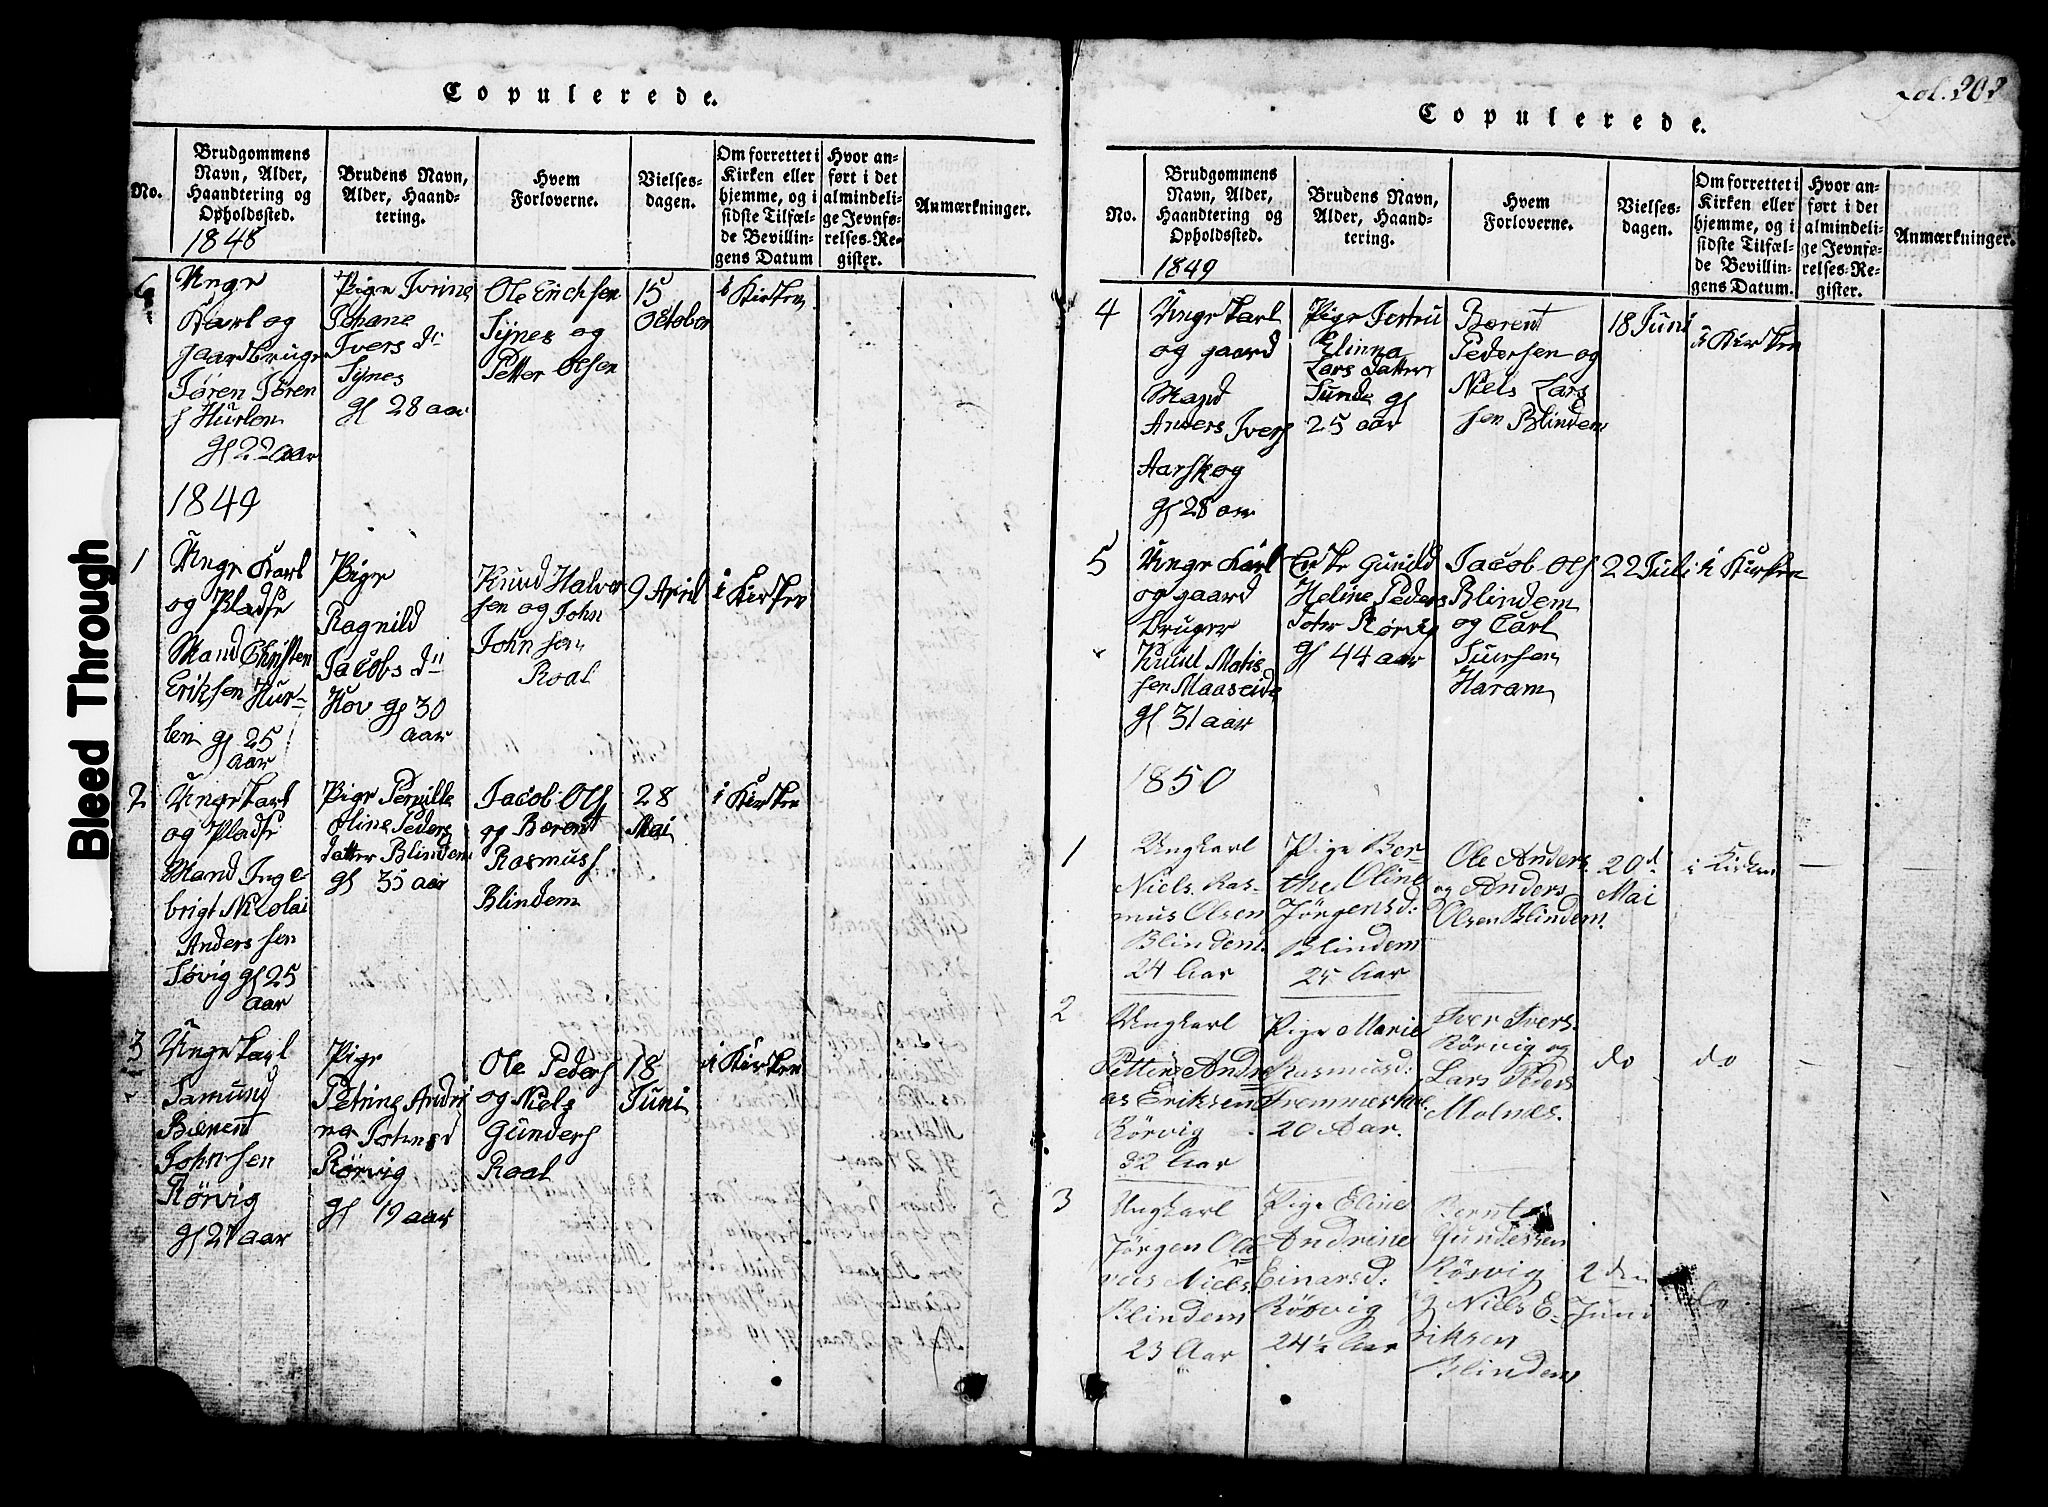 Bleed Through
Copulerede.
No.
Brudgommens
Navn, Alder,
Haandtering og
Opholdssted.
1848
Brudens Navn,
Alder, Haand-
tering.
Hvem
Forloverne.
Vielses-
dagen.
Om forrettet i
Kirken eller
hjemme, og i
sidste Tilfæl-
de Bevillin-
gens Datum
Hvor an-
ført i det
almindeli-
ge Jevnfø-
relses-Re-
gister.
Anmærkninger.
6
Unge
Karl og
gaardbruger
Søren Søren
s Hurlen
gl 22 aar
Pige Ivrine
Johane
Ivers dn
Synes
gl 28 aar
Ole Erichsen
Synes og
Petter Olsen
15
October
i Kirken
1849
1
Unge Karl
og Pladse
Mand Christen
Eriksen Hur-
len gl 25
aar
Pige
Ragnild
Jacobs dn
Hov gl 30
aar
Knud Halvor
sen og John
John sen
Roal
9 April
i Kirken
2
Unge karl
og Pladse
Mand Inge
brigt Nicolai
Anders sen
Søvig gl 25
aar
Pige Pernille
Oline Peders
datter Blindem
gl 35 aar
Jacob Ols
og Berent
Rasmus s
Blindem
28
Mai
i Kirken
3
Unge karl
Samund
Berent
John sen
Rørvig
gl 27 aar
Pige
Petrine Andri
ne Johnsd
Rørvig
gl 19 aar
Ole Peders
og Niels
Gunders
Roal
18
Juni
i Kirken
Fol. 202
Copulerede.
No.
Brudgommens
Navn, Alder,
Haandtering og
Opholdssted.
1849
Brudens Navn,
Alder, Haand-
tering.
Hvem
Forloverne.
Vielses-
dagen.
Om forrettet i
Kirken eller
hjemme, og i
sidste Tilfæl-
de Bevillin-
gens Datum.
Hvor an-
ført i det
almindeli-
ge Jevnfø-
relses-Re-
gister.
Anmærkninger.
4
Unge karl
og gaard
Mand
Anders Ivers
Aarskog
gl 28 aar
Pige Jertru
Elinna
Lars datter
Sunde gl
25 aar
Berent
Pedersen og
Niels Lars
sen Blindem
18 Juni
i Kirken
5
Unge Karl
og gaard
bruger
Knud Matis
sen Maaseide
gl 31 aar
Enke Gunild
Heline Peders
doter Rørvig
gl 44 aar
Jacob Ols
Blindem
og Carl
Sursen
Haram
22 Juli
i Kirken
1850
1
Ungkarl
Niels Ras-
mus Olsen
Blindem.
24 Aar
Pige Ber-
the Oline
Jörgensd:
Blindem
25 Aar
Ole Anders.
og Anders
Olsen Blindem.
20d
Mai
i Kirken
2
Ungkarl
Petter Andre
as Eriksen
Rörvig
32 Aar
Pige Marie
Rasmusd:
20 Aar.
Iver Ivers.
Rörvig og
Lars Peders
Molnes.
do
do
3
Ungkarl
Jörgen Ola
vus Niels.
Blindem
23 Aar
Pige Eline
Andrine
Einarsd:
Rörvig
24½ Aar
Bernt
Gundersen
Rörvig
og Niels E-
riksen
Blindem
2den
Juni
do